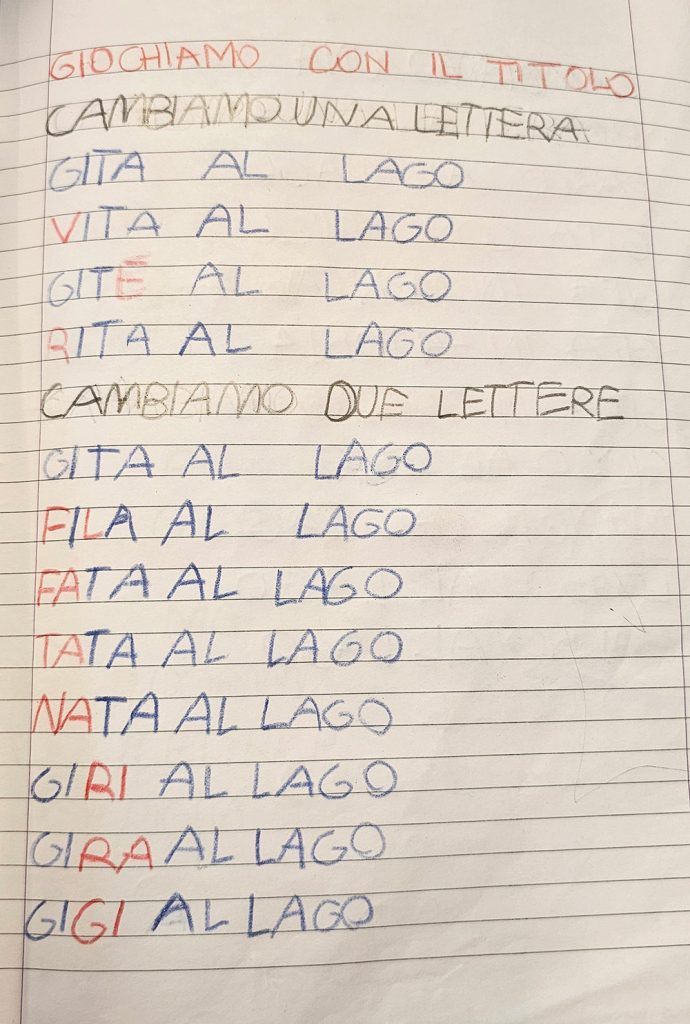 GIOCHIAMO CON IL TITOLO
CAMBIAMO UNA LETTERA
GITA AL LAGO
VITA AL LAGO
GITE AL LAGO
RITA AL LAGO
CAMBIAMO DUE LETTERE
GITA AL LAGO
FILA AL LAGO
FATA AL LAGO
TATA AL LAGO
NATA AL LAGO
GIRI AL LAGO
GIRA AL LAGO
GIGI AL LAGO